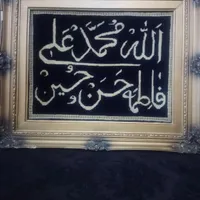 الله محمد علي
فاطمة حسن و حسين